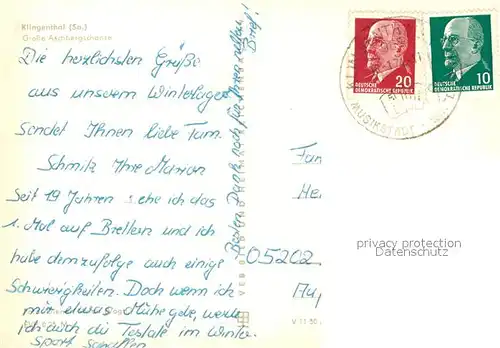 Klingenthal (Sa.)
Große Aschbergschanze
Die herzlichsten Grüße
aus unserem Winterlager
sendet Ihnen liebe Fam.
Schmitz Ihre Marion
Seit 19 Jahren stehe ich das
1. Mal auf Brettern und ich
habe demzufolge auch einige
Schwierigkeiten. Doch wenn ich
mir etwas Mühe gebe, werde
ich auch die Testate im Winter-
sport schaffen
Besten Dank noch für Ihren netten
Brief!
VEB
20
DEUTSCHE
DEMOKRATISCHE REPUBLIK
10
DEUTSCHE
DEMOKRATISCHE REPUBLIK
MUSIKSTADT
Fam
05202
privacy protection
Datenschutz
V 11 50